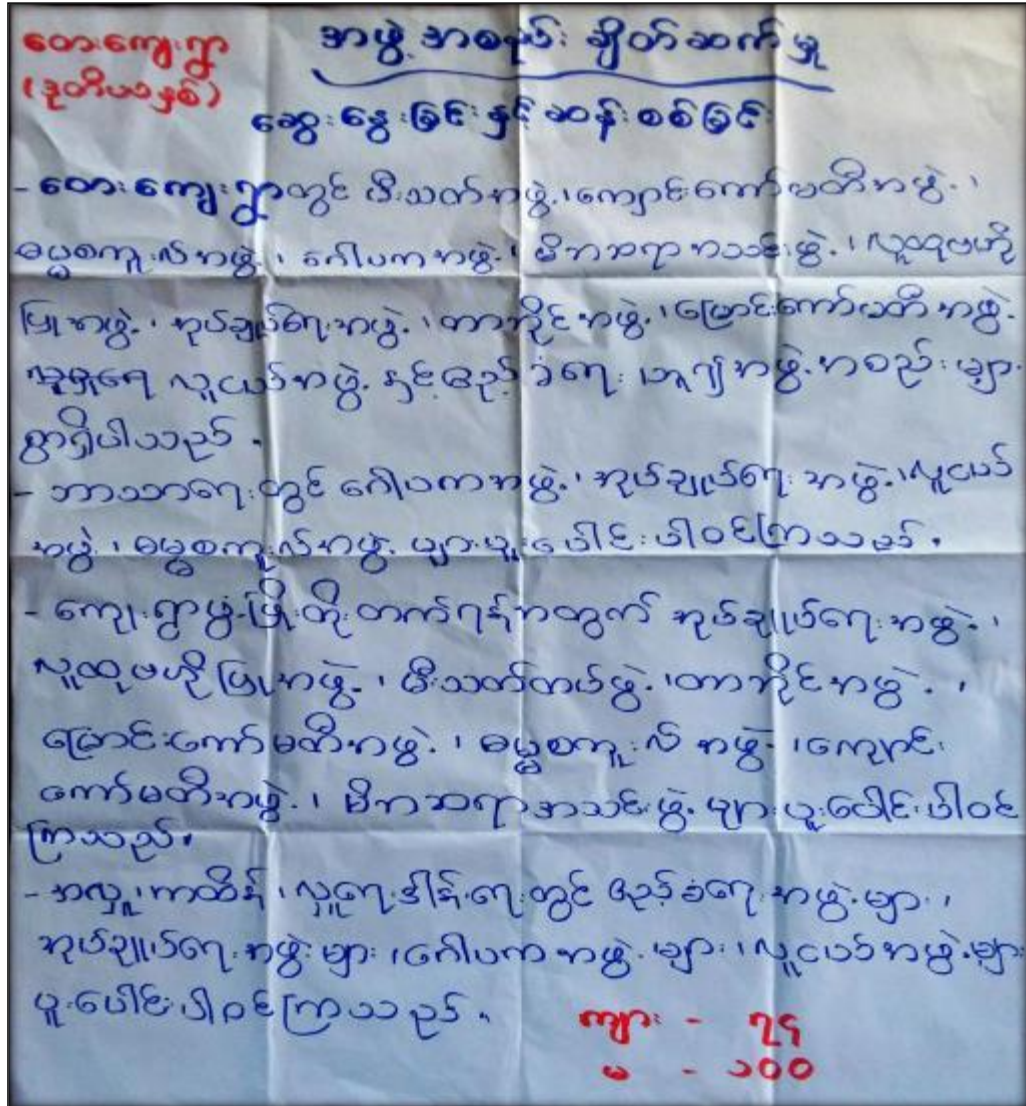 တေးကျေးရွာ
(ဒုတိယနှစ်)
အဖွဲ့အစည်းချိတ်ဆက်မှု
ဆွေးနွေးခြင်းနှင့်ဆန်းစစ်ခြင်း
- တေးကျေးရွာတွင် မီးသတ်အဖွဲ့၊ ကျောင်းကော်မတီအဖွဲ့၊
ဓမ္မစကူးလ်အဖွဲ့၊ ဂေါပကအဖွဲ့၊ မိဘဆရာအသင်းဖွဲ့၊ လူထုဗဟို
ပြုအဖွဲ့၊ အုပ်ချုပ်ရေးအဖွဲ့၊ တာဘိုင်အဖွဲ့၊ မြောင်းကော်မတီအဖွဲ့
သူရှုရေ လူငယ်အဖွဲ့ နှင့် ဧည့်ခံရေး ဘူဂျီအဖွဲ့အစည်းများ
စွာရှိပါသည်။
- ဘာသာရေးတွင် ဂေါပကအဖွဲ့၊ အုပ်ချုပ်ရေးအဖွဲ့၊ လူငယ်
အဖွဲ့၊ ဓမ္မစကူးလ်အဖွဲ့ များပူးပေါင်းပါဝင်ကြသည်။
- ကျေးရွာဖွံ့ဖြိုးတိုးတက်ရန်အတွက် အုပ်ချုပ်ရေးအဖွဲ့၊
လူထုဗဟိုပြုအဖွဲ့၊ မီးသတ်တပ်ဖွဲ့၊ တာဘိုင်အဖွဲ့၊
မြောင်းကော်မတီအဖွဲ့၊ ဓမ္မစကူးလ်အဖွဲ့၊ ကျောင်း
ကော်မတီအဖွဲ့၊ မိဘဆရာအသင်းဖွဲ့ များပူးပေါင်းပါဝင်
ကြသည်။
- အလှူ၊ ကထိန်၊ လှူရေးဒါန်းရေးတွင် ဧည့်ခံရေးအဖွဲ့များ၊
အုပ်ချုပ်ရေးအဖွဲ့များ၊ ဂေါပကအဖွဲ့များ၊ လူငယ်အဖွဲ့များ
ပူးပေါင်းပါဝင်ကြသည်။
ကျား - ၇၄
မ - ၁၀၀